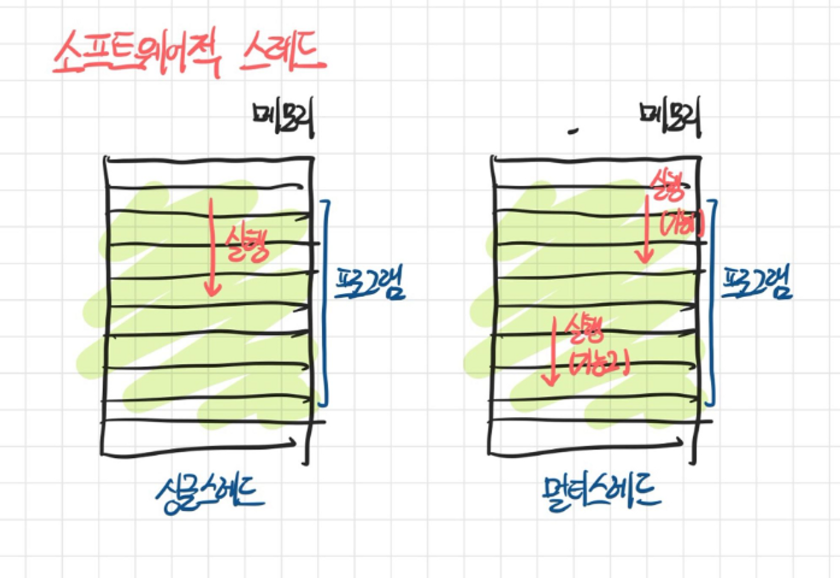 소프트웨어적 스레드
메모리
실행
프로그램
싱글스레드
메모리
실행
(기능1)
실행
(기능2)
프로그램
멀티스레드